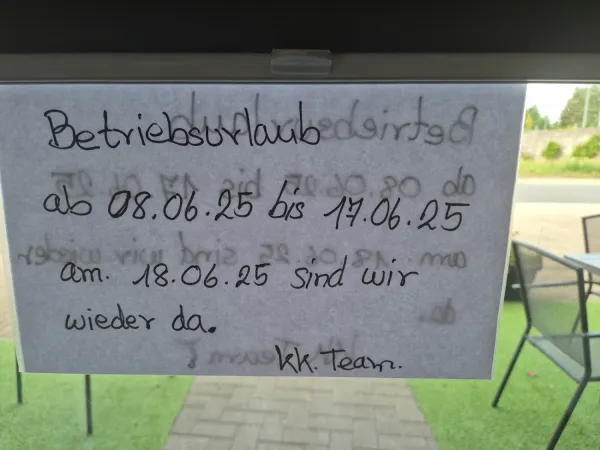 Betriebsurlaub
ab 08.06.25 bis 17.06.25
am. 18.06.25 sind wir
wieder da.
KK. Team.